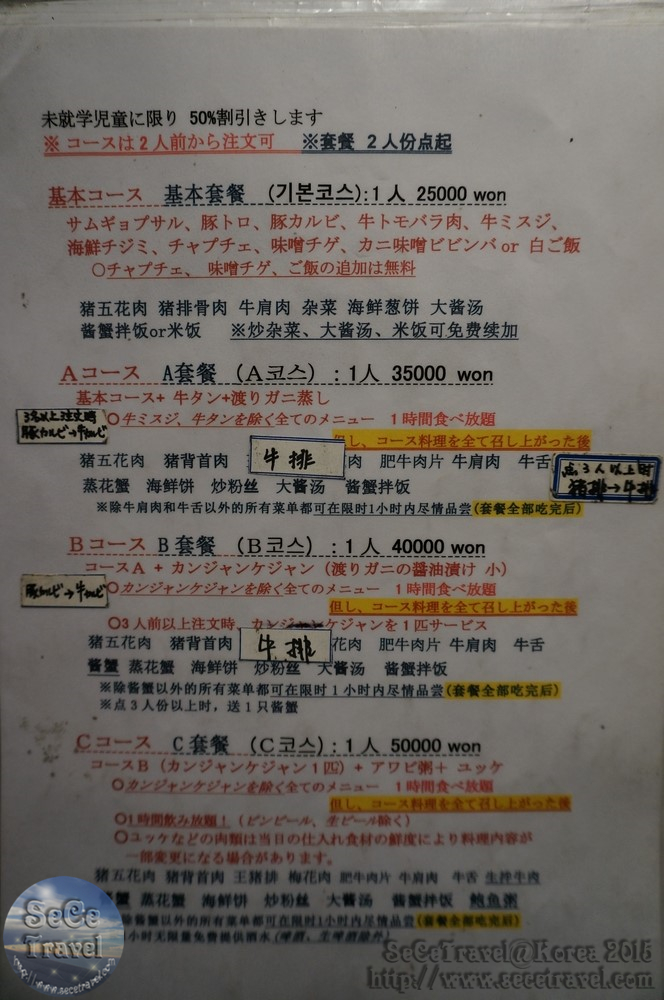 未就学児童に限り 50%割引きします
※ コースは2人前から注文可 ※套餐 2人份点起
基本コース 基本套餐 (기본코스):1人 25000 won
サムギョプサル、豚トロ、豚カルビ、牛トモバラ肉、牛ミスジ、
海鮮チジミ、チャプチェ、味噌チゲ、カニ味噌ビビンバ or 白ご飯
○チャプチェ、味噌チゲ、ご飯の追加は無料
猪五花肉 猪排骨肉 牛肩肉 杂菜 海鲜葱饼 大酱汤
酱蟹拌饭or米饭 ※炒杂菜、大酱汤、米饭可免费续加
Aコース A套餐 (A코스) :1人 35000 won
基本コース+ 牛タン+渡りガニ蒸し
3名以上注文時
豚カルビ→牛カルビ
○牛ミスジ、牛タンを除く全てのメニュー 1時間食べ放題
但し、コース料理を全て召し上がった後
猪五花肉 猪背首肉 牛排 肉 肥牛肉片 牛肩肉 牛舌
点3人以上时
猪排→牛排
蒸花蟹 海鲜饼 炒粉丝 大酱汤 酱蟹拌饭
※除牛肩肉和牛舌以外的所有菜单都可在限时1小时内尽情品尝(套餐全部吃完后)
Bコース B套餐 (B코스) :1人 40000 won
コースA + カンジャンケジャン (渡りガニの醤油漬け 小)
豚カルビ→牛カルビ
○カンジャンケジャンを除く全てのメニュー 1時間食べ放題
但し、コース料理を全て召し上がった後
○3人前以上注文時、カンジャンケジャンを1匹サービス
猪五花肉 猪背首肉 牛排 花肉 肥牛肉片 牛肩肉 牛舌
酱蟹 蒸花蟹 海鲜饼 炒粉丝 大酱汤 酱蟹拌饭
※除酱蟹以外的所有菜单都可在限时1小时内尽情品尝(套餐全部吃完后)
※点3人份以上时,送1只酱蟹
Cコース C套餐 (C코스) :1人 50000 won
コースB (カンジャンケジャン1匹) + アワビ粥+ ユッケ
○カンジャンケジャンを除く全てのメニュー 1時間食べ放題
但し、コース料理を全て召し上がった後
○1時間飲み放題! (ビンビール、生ビール除く)
○ユッケなどの肉類は当日の仕入れ食材の鮮度により料理内容が
一部変更になる場合があります。
猪五花肉 猪背首肉 王猪排 梅花肉 肥牛肉片 牛肩肉 牛舌 生拌牛肉
蟹 蒸花蟹 海鲜饼 炒粉丝 大酱汤 酱蟹拌饭 鲍鱼粥
除酱蟹以外的所有菜单都可在限时1小时内尽情品尝(套餐全部吃完后)
小时无限量免费提供酒水
SeCe
Travel
SeCeTravel@Korea 2015
http://www.secetravel.com